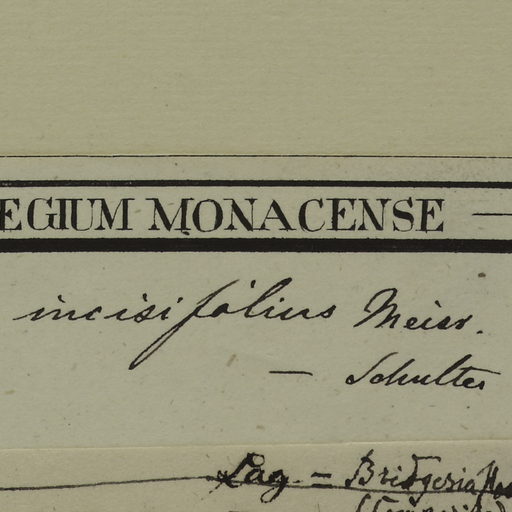 EGIUM MONACENSE —
incisifolius Meisn.
— Schultes
Lag. —